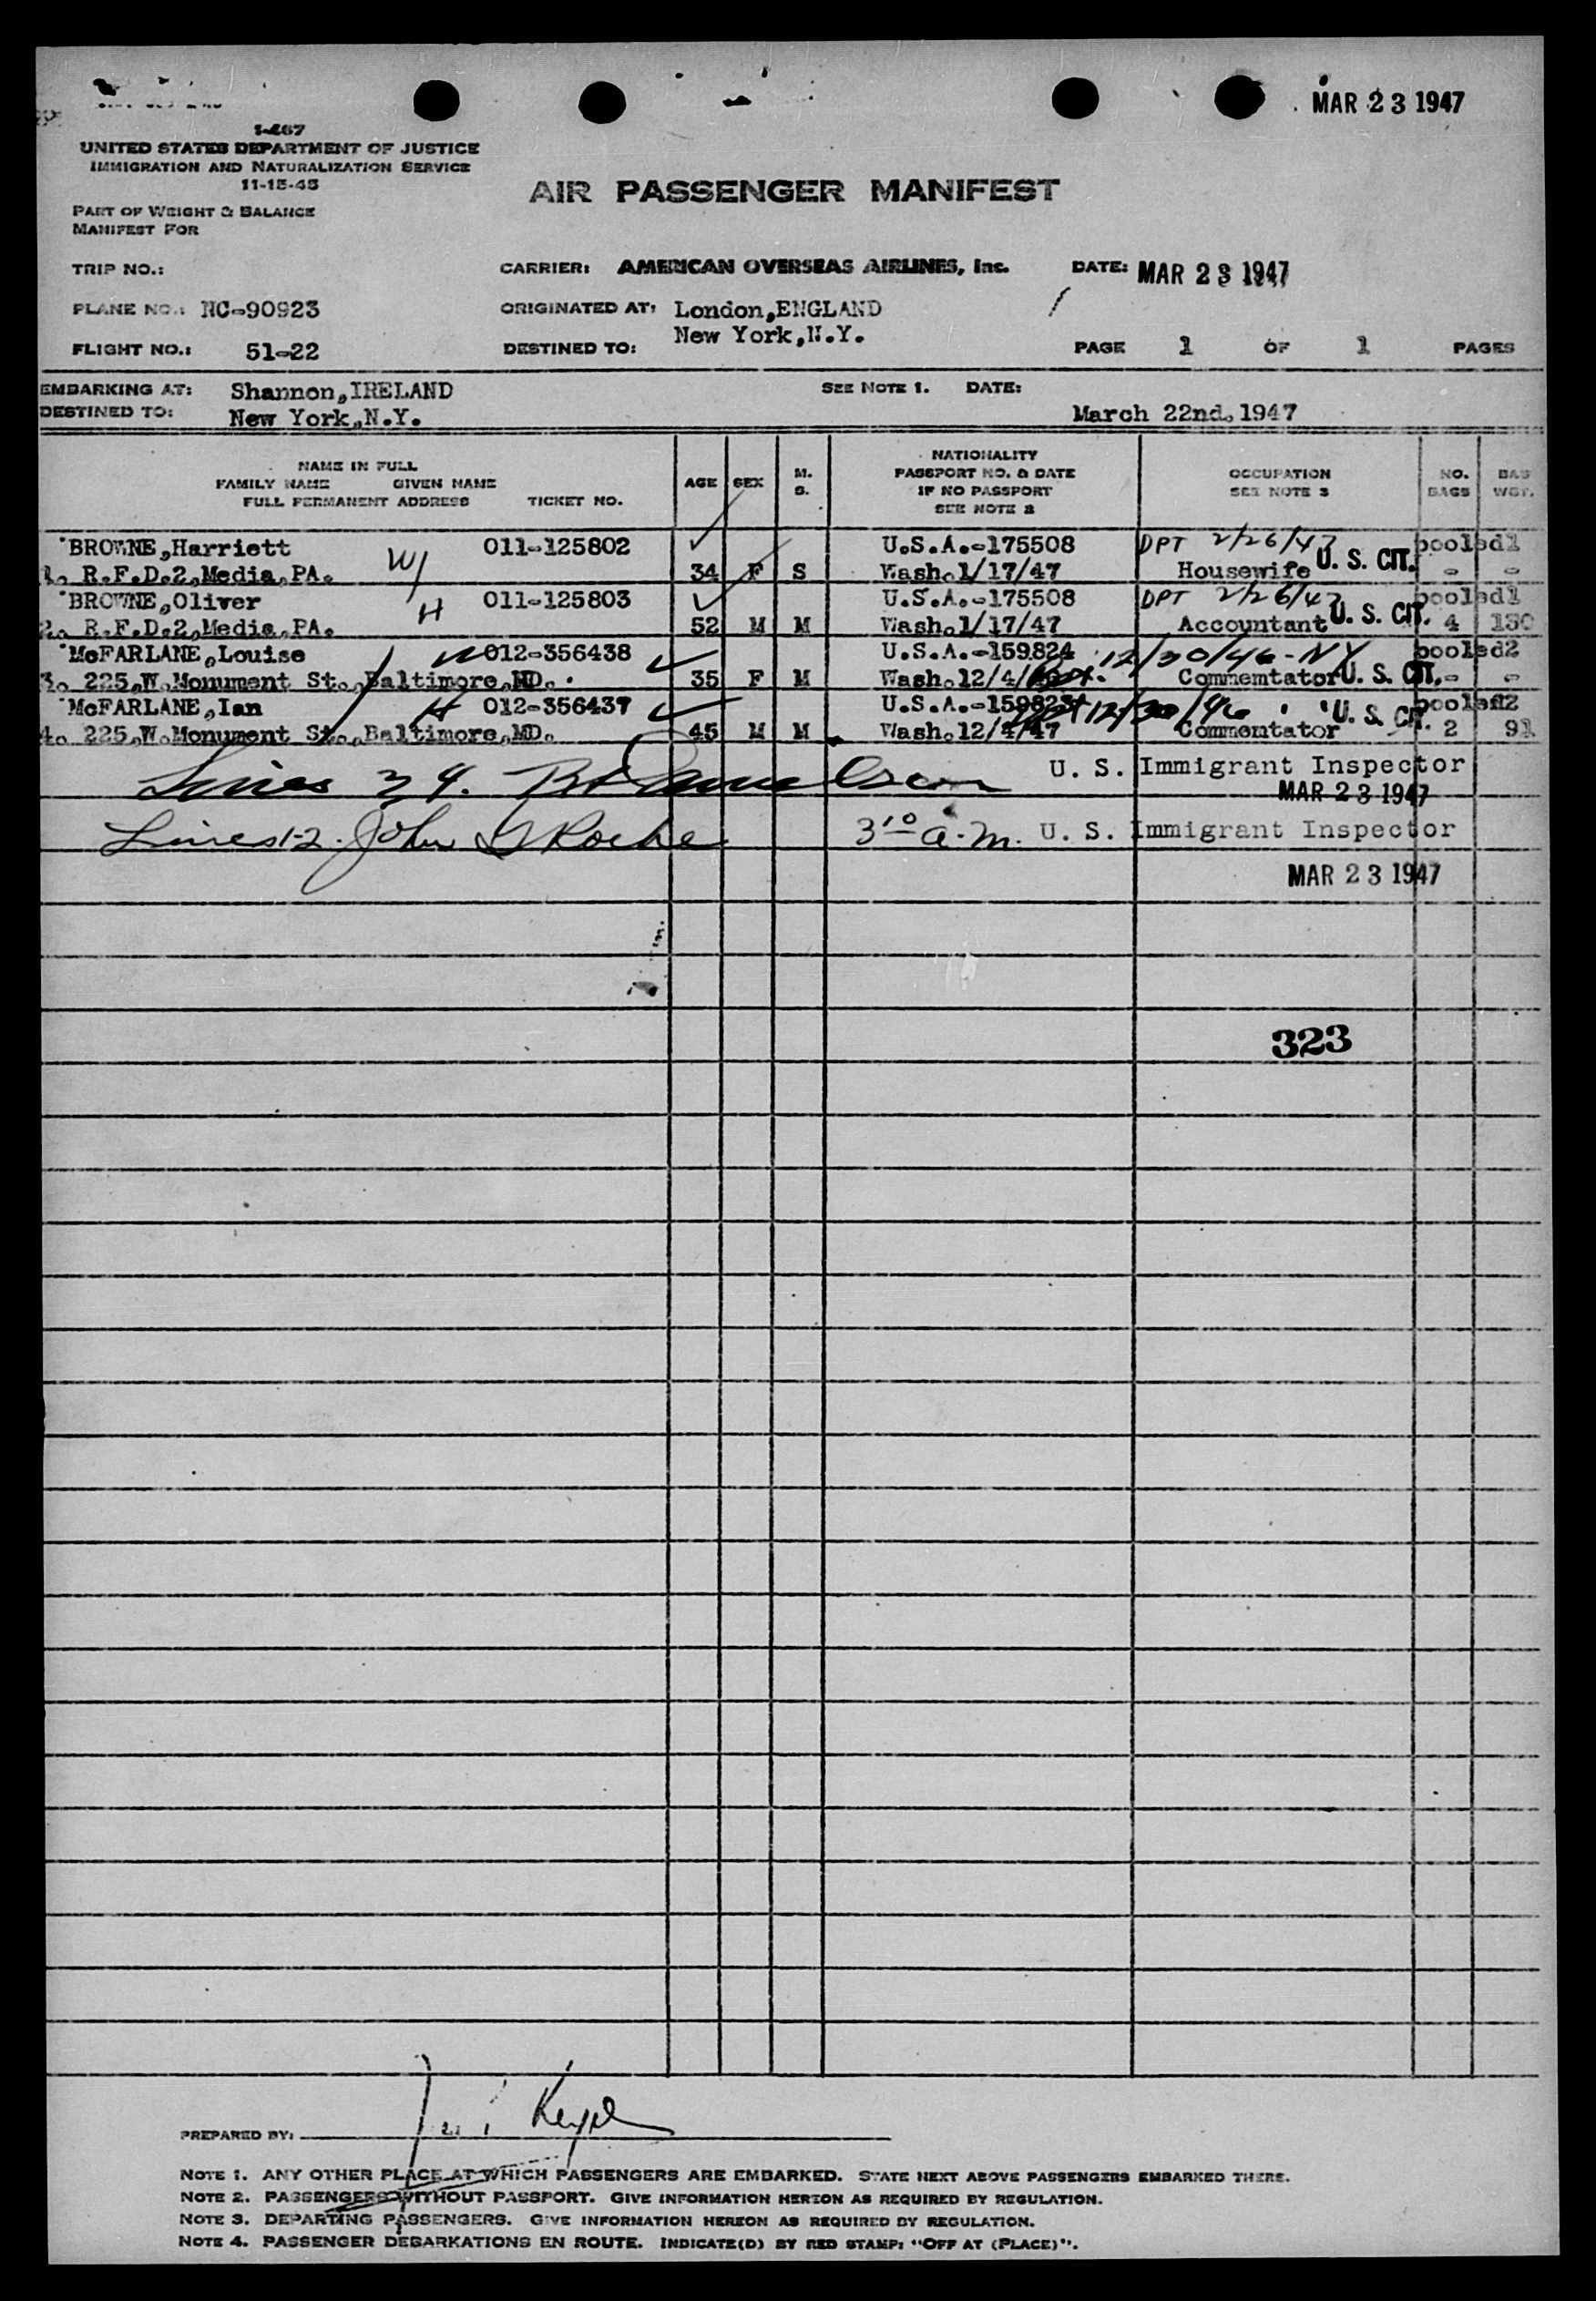 MAR 23 1947
I-467
UNITED STATES DEPARTMENT OF JUSTICE
IMMIGRATION AND NATURALIZATION SERVICE
11-15-45
AIR PASSENGER MANIFEST
PART OF WEIGHT & BALANCE
MANIFEST FOR
TRIP NO.:
CARRIER: AMERICAN OVERSEAS AIRLINES, Inc.
DATE: MAR 23 1947
PLANE NO.: NC-90923
ORIGINATED AT: London,ENGLAND
FLIGHT NO.: 51-22
DESTINED TO: New York,N.Y.
PAGE 1 OF 1 PAGES
EMBARKING AT: Shannon,IRELAND
SEE NOTE 1. DATE:
DESTINED TO: New York,N.Y.
March 22nd,1947
NAME IN FULL
FAMILY NAME GIVEN NAME
FULL PERMANENT ADDRESS TICKET NO.
AGE SEX M. S.
NATIONALITY
PASSPORT NO. & DATE
IF NO PASSPORT
SEE NOTE 2
OCCUPATION
SEE NOTE 3
NO. BAGS
BAG WGT.
BROWNE,Harriett W/ 011-125802 U.S.A.-175508 DPT 2/26/47 pooled1
1. R.F.D.2,Media,PA. 34 F S Wash.1/17/47 Housewife U. S. CIT. - -
BROWNE,Oliver H 011-125803 U.S.A.-175508 DPT 2/26/47 pooled1
2. R.F.D.2,Media,PA. 52 M M Wash.1/17/47 Accountant U. S. CIT. 4 130
McFARLANE,Louise W 012-356438 U.S.A.-159824 12/30/46-NY pooled2
3. 225,W.Monument St.,Baltimore,MD. 35 F M Wash.12/4/ Commemtator U. S. CIT. - -
McFARLANE,Ian H 012-356437 U.S.A.-159823 12/30/46 pooled2
4. 225,W.Monument St.,Baltimore,MD. 45 M M Wash.12/4/47 Commentator U. S. CIT. 2 91
Lines 3 4. U. S. Immigrant Inspector
MAR 23 1947
Lines 1-2. John G Roche 3 10 a.m. U. S. Immigrant Inspector
MAR 23 1947
323
PREPARED BY:
NOTE 1. ANY OTHER PLACE AT WHICH PASSENGERS ARE EMBARKED. STATE NEXT ABOVE PASSENGERS EMBARKED THERE.
NOTE 2. PASSENGERS WITHOUT PASSPORT. GIVE INFORMATION HEREON AS REQUIRED BY REGULATION.
NOTE 3. DEPARTING PASSENGERS. GIVE INFORMATION HEREON AS REQUIRED BY REGULATION.
NOTE 4. PASSENGER DEBARKATIONS EN ROUTE. INDICATE(D) BY RED STAMP: "OFF AT (PLACE)".